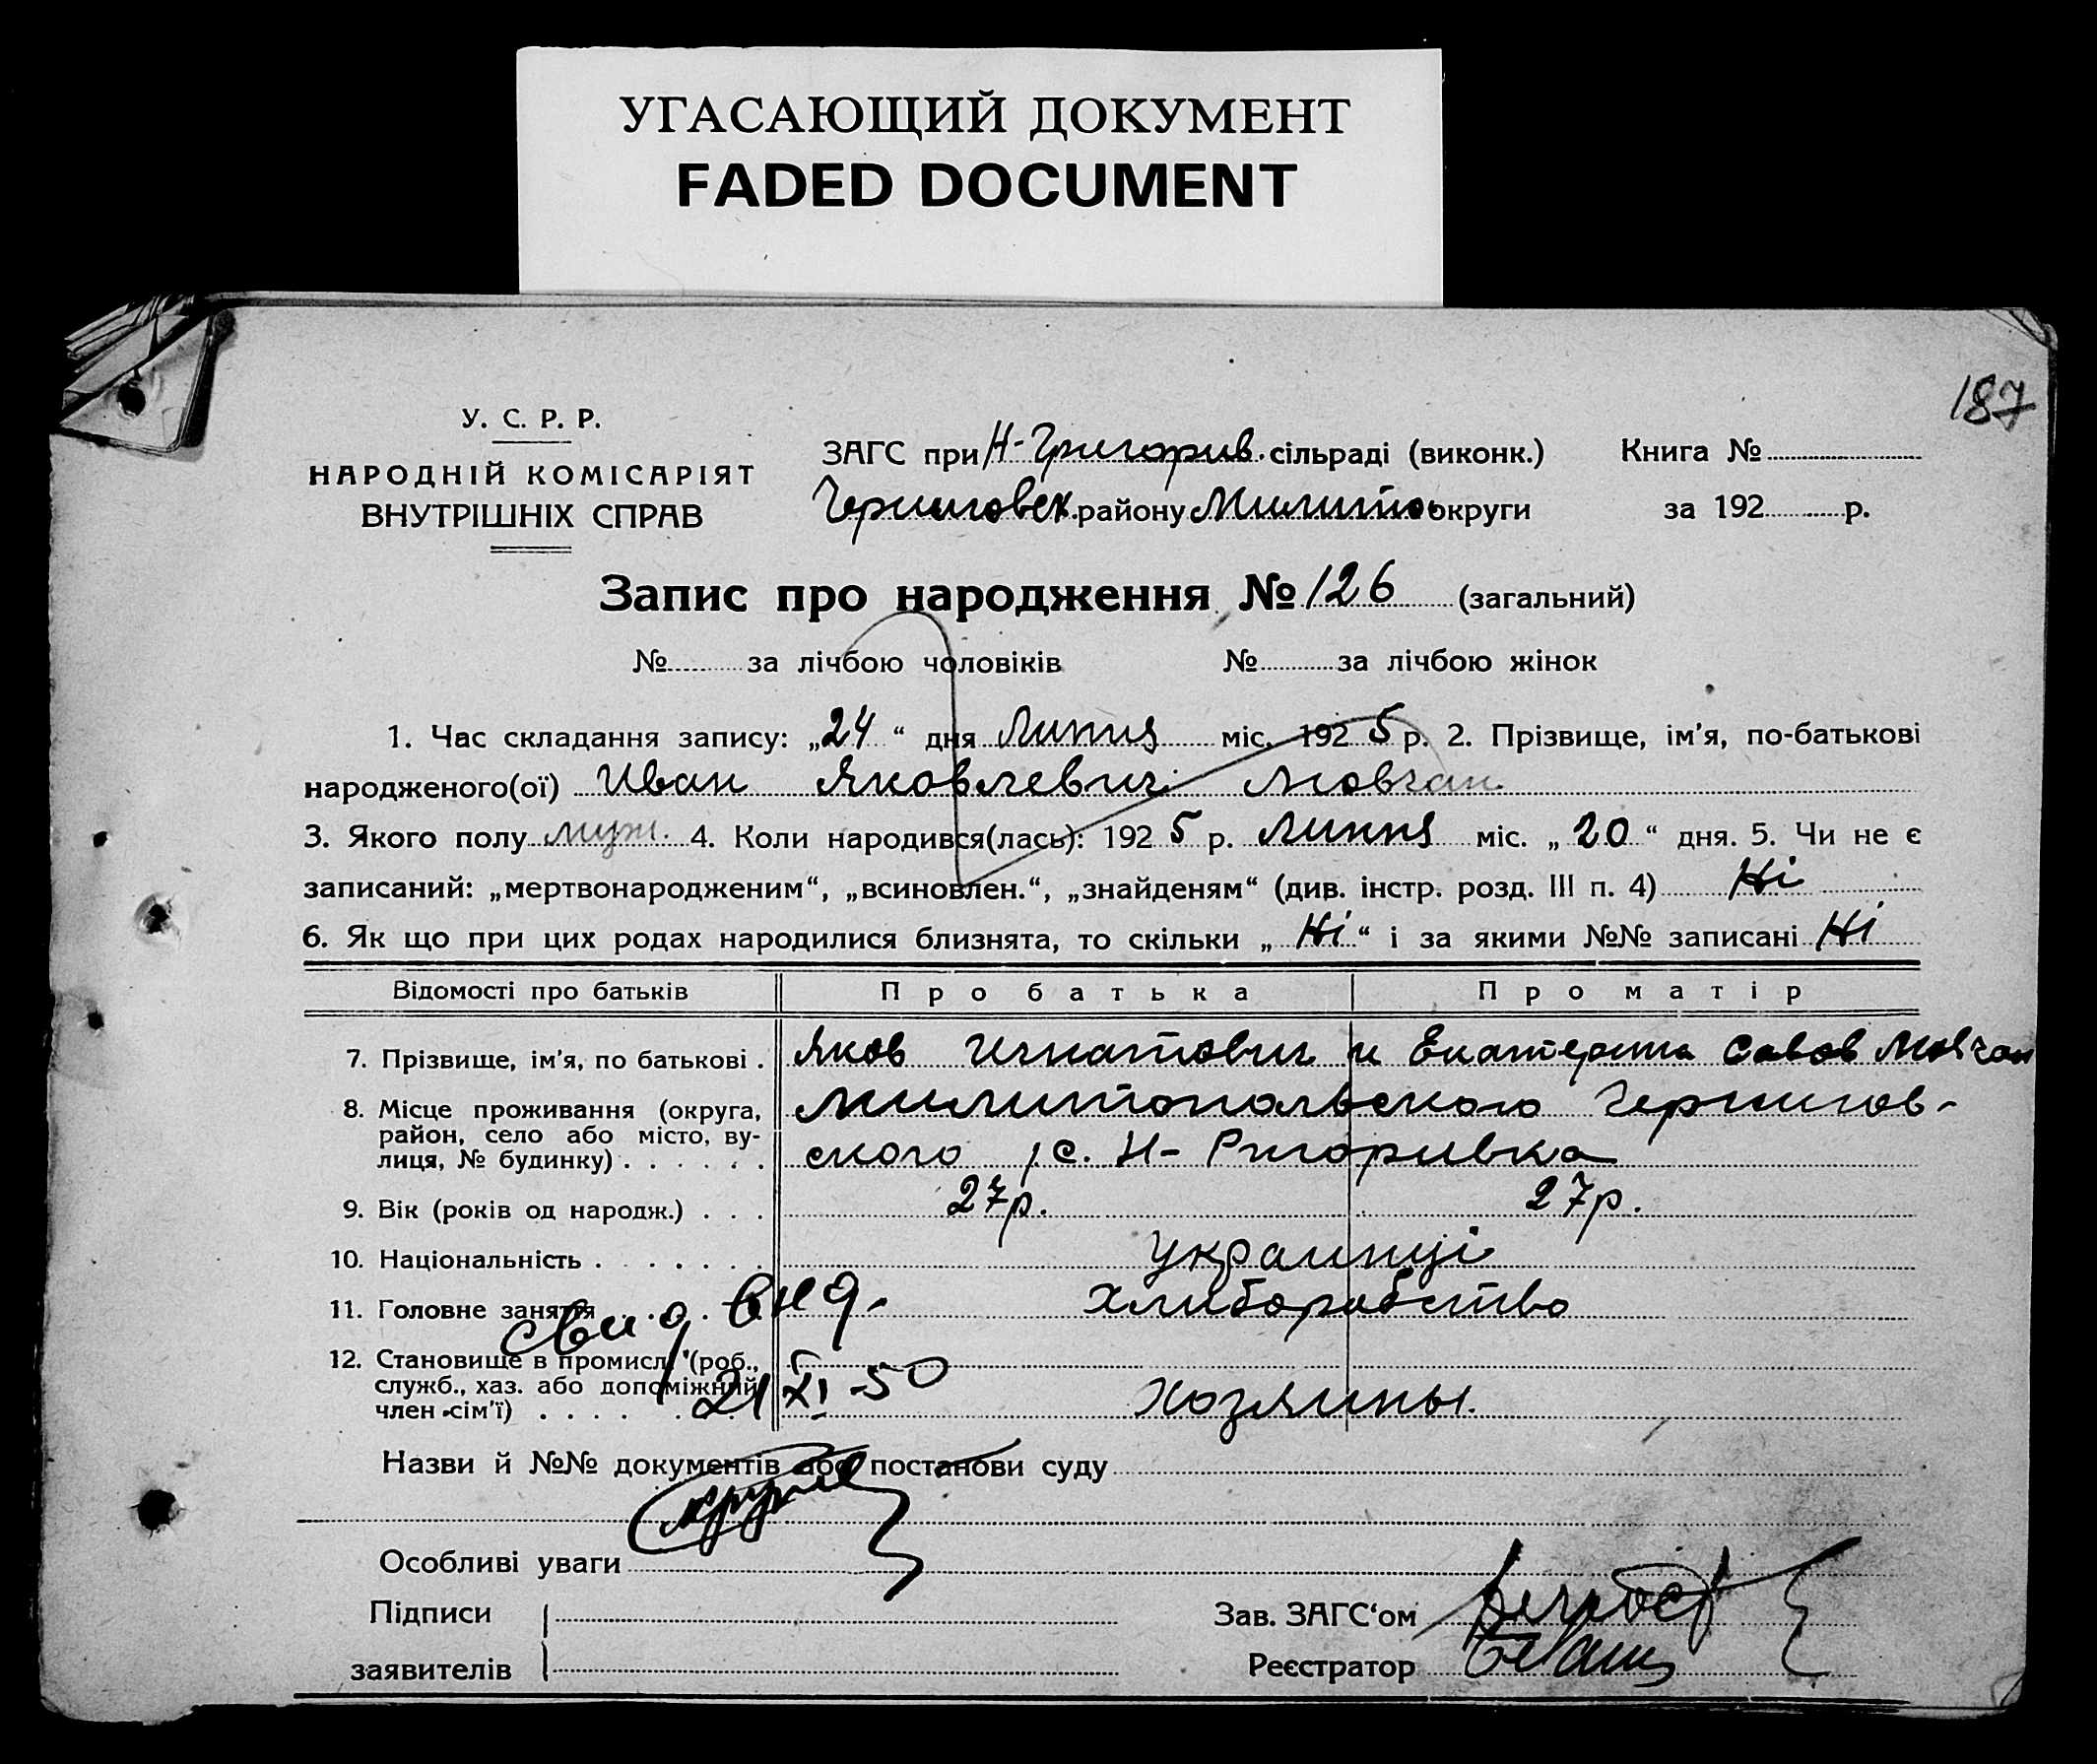 УГАСАЮЩИЙ ДОКУМЕНТ
FADED DOCUMENT
187
У. С. Р. Р.
НАРОДНІЙ КОМІСАРІЯТ
ВНУТРІШНІХ СПРАВ
ЗАГС при Н-Григорив. сільраді (виконк.)
Книга №
Черниговск. району Милито округи
за 192 р.
Запис про народження № 126 (загальний)
№ за лічбою чоловіків № за лічбою жінок
1. Час складання запису: „24“ дня Липня міс. 1925 р. 2. Прізвище, ім'я, по-батькові
народженого(ої) Иван Яковлевич Мовчан
3. Якого полу муж. 4. Коли народився(лась): 1925 р. Липня міс. „20“ дня. 5. Чи не є
записаний: „мертвонародженим“, „всиновлен.“, „знайденям“ (див. інстр. розд. III п. 4) Ні
6. Як що при цих родах народилися близнята, то скільки „Ні“ і за якими №№ записані Ні
Відомості про батьків Про батька Про матір
7. Прізвище, ім'я, по батькові . Яков Игнатович и Екатерина Савов Мовчан
8. Місце проживання (округа, Милитопольского Чернигов-
район, село або місто, ву-
лиця, № будинку) . . . . . . ского с. Н-Ригоривка
9. Вік (років од народж.) . . . 27р. 27р.
10. Національність . . . . . . . Украинці
11. Головне заняття . . . . . Хлиборобство
свид. внд.
12. Становище в промисл. (роб.,
служб., хаз. або допоміжний
член сім'ї) . . . . . . Хозяины.
21/XI-50
Назви й №№ документів або постанови суду
Особливі уваги
Підписи
заявителів
Зав. ЗАГС'ом
Реєстратор